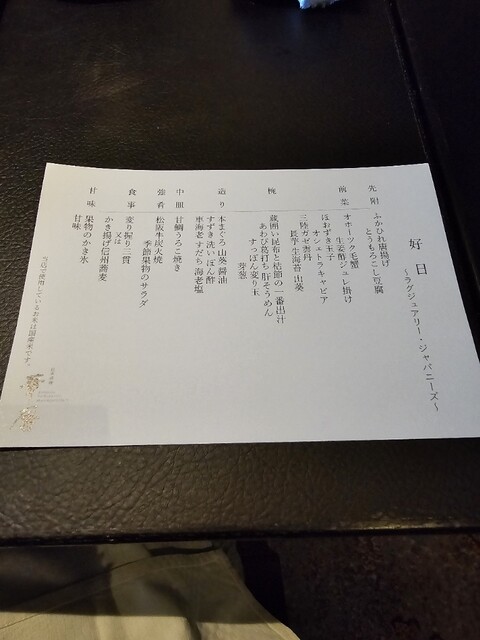 好日
~ラグジュアリー・ジャパニーズ~
先附 ふかひれ唐揚げ
とうもろこし豆腐
前菜 オホーツク毛蟹
生姜酢ジュレ掛け
ほおずき玉子
オシェトラキャビア
三陸ガゼ雲丹
長芋生海苔山葵
椀 蔵囲い昆布と枯節の一番出汁
あわび葛打ち肝そうめん
すっぽん変り玉
芽葱
造り 本まぐろ 山葵 醤油
すずき洗い ぽん酢
車海老 すだち 海老塩
中皿 甘鯛うろこ焼き
強肴 松阪牛炭火焼
季節果物のサラダ
食事 変り握り二貫
又は
かき揚げ信州蕎麦
甘味 果物のかき氷
甘味
当店で使用しているお米は国産米です。